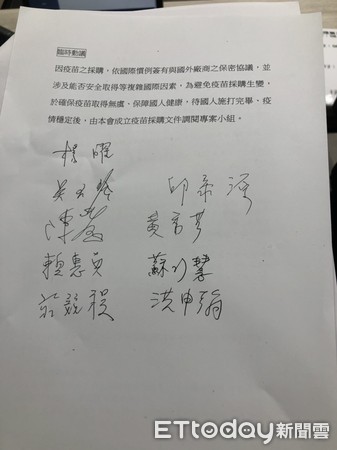 臨時動議
因疫苗之採購,依國際慣例簽有與國外廠商之保密協議,並
涉及能否安全取得等複雜國際因素,為避免疫苗採購生變,
於確保疫苗取得無虞、保障國人健康,待國人施打完畢,疫
情穩定後,由本會成立疫苗採購文件調閱專案小組。
楊曜
吳玉琴 邱泰源
陳瑩 黃秀芳
賴惠員 蘇巧慧
莊競程 洪申翰
ETtoday新聞雲